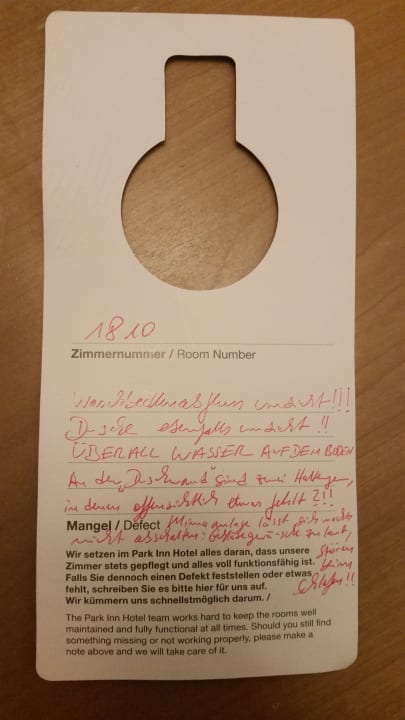 1810
Zimmernummer / Room Number
Waschbeckenabfluss undicht!!!
Dusche ebenfalls undicht!!
ÜBERALL WASSER AUF DEM BODEN
An der "Duschwand" sind zwei Halterungen,
in denen offensichtlich etwas fehlt?!!
Mangel / Defect Klimaanlage lässt sich nachts
nicht abschalten: zu laut,
stören
beim
Schlafen!!
Wir setzen im Park Inn Hotel alles daran, dass unsere
Zimmer stets gepflegt und alles voll funktionsfähig ist.
Falls Sie dennoch einen Defekt feststellen oder etwas
fehlt, schreiben Sie es bitte hier für uns auf.
Wir kümmern uns schnellstmöglich darum. /
The Park Inn Hotel team works hard to keep the rooms well
maintained and fully functional at all times. Should you still find
something missing or not working properly, please make a
note above and we will take care of it.